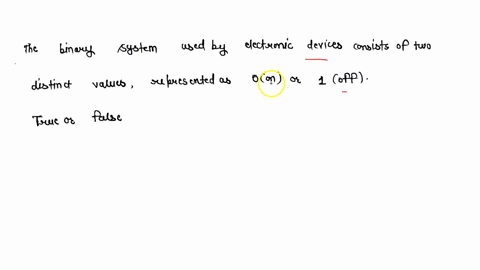 The binary system used by electronic devices consists of two
distinct values, represented as 0(on) or 1 (off).
True or false